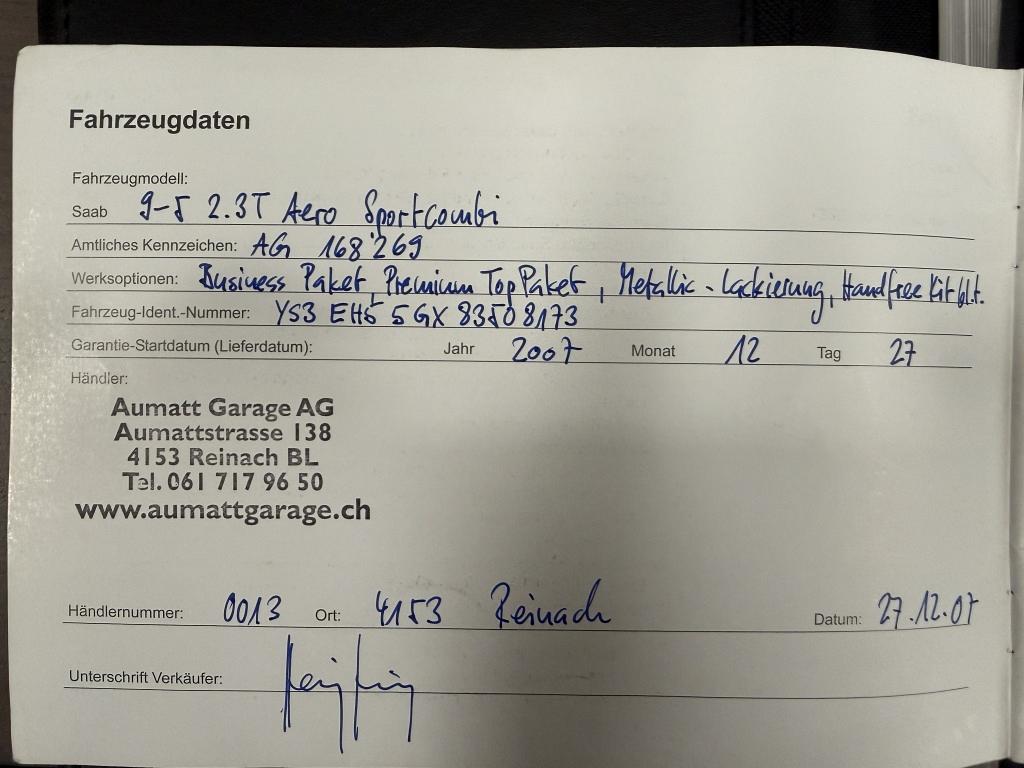 Fahrzeugdaten
Fahrzeugmodell:
Saab 9-5 2.3T Aero Sportcombi
Amtliches Kennzeichen: AG 168'269
Werksoptionen: Business Paket, Premium TopPaket, Metallic-Lackierung, Handfree Kit bl.t.
Fahrzeug-Ident.-Nummer: YS3 EH5 5GX 83508173
Garantie-Startdatum (Lieferdatum): Jahr 2007 Monat 12 Tag 27
Händler:
Aumatt Garage AG
Aumattstrasse 138
4153 Reinach BL
Tel. 061 717 96 50
www.aumattgarage.ch
Händlernummer: 0013 Ort: 4153 Reinach Datum: 27.12.07
Unterschrift Verkäufer: